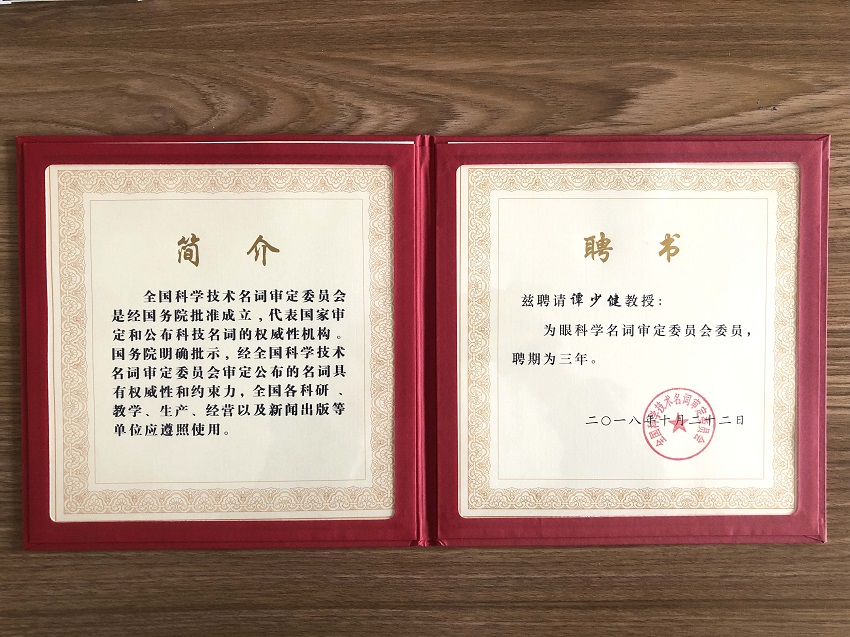 简介
全国科学技术名词审定委员会
是经国务院批准成立，代表国家审
定和公布科技名词的权威性机构。
国务院明确批示，经全国科学技术
名词审定委员会审定公布的名词具
有权威性和约束力，全国各科研、
教学、生产、经营以及新闻出版等
单位应遵照使用。
聘书
兹聘请谭少健教授：
为眼科学名词审定委员会委员，
聘期为三年。
二〇一八年十月二十二日
全国科学技术名词审定委员会